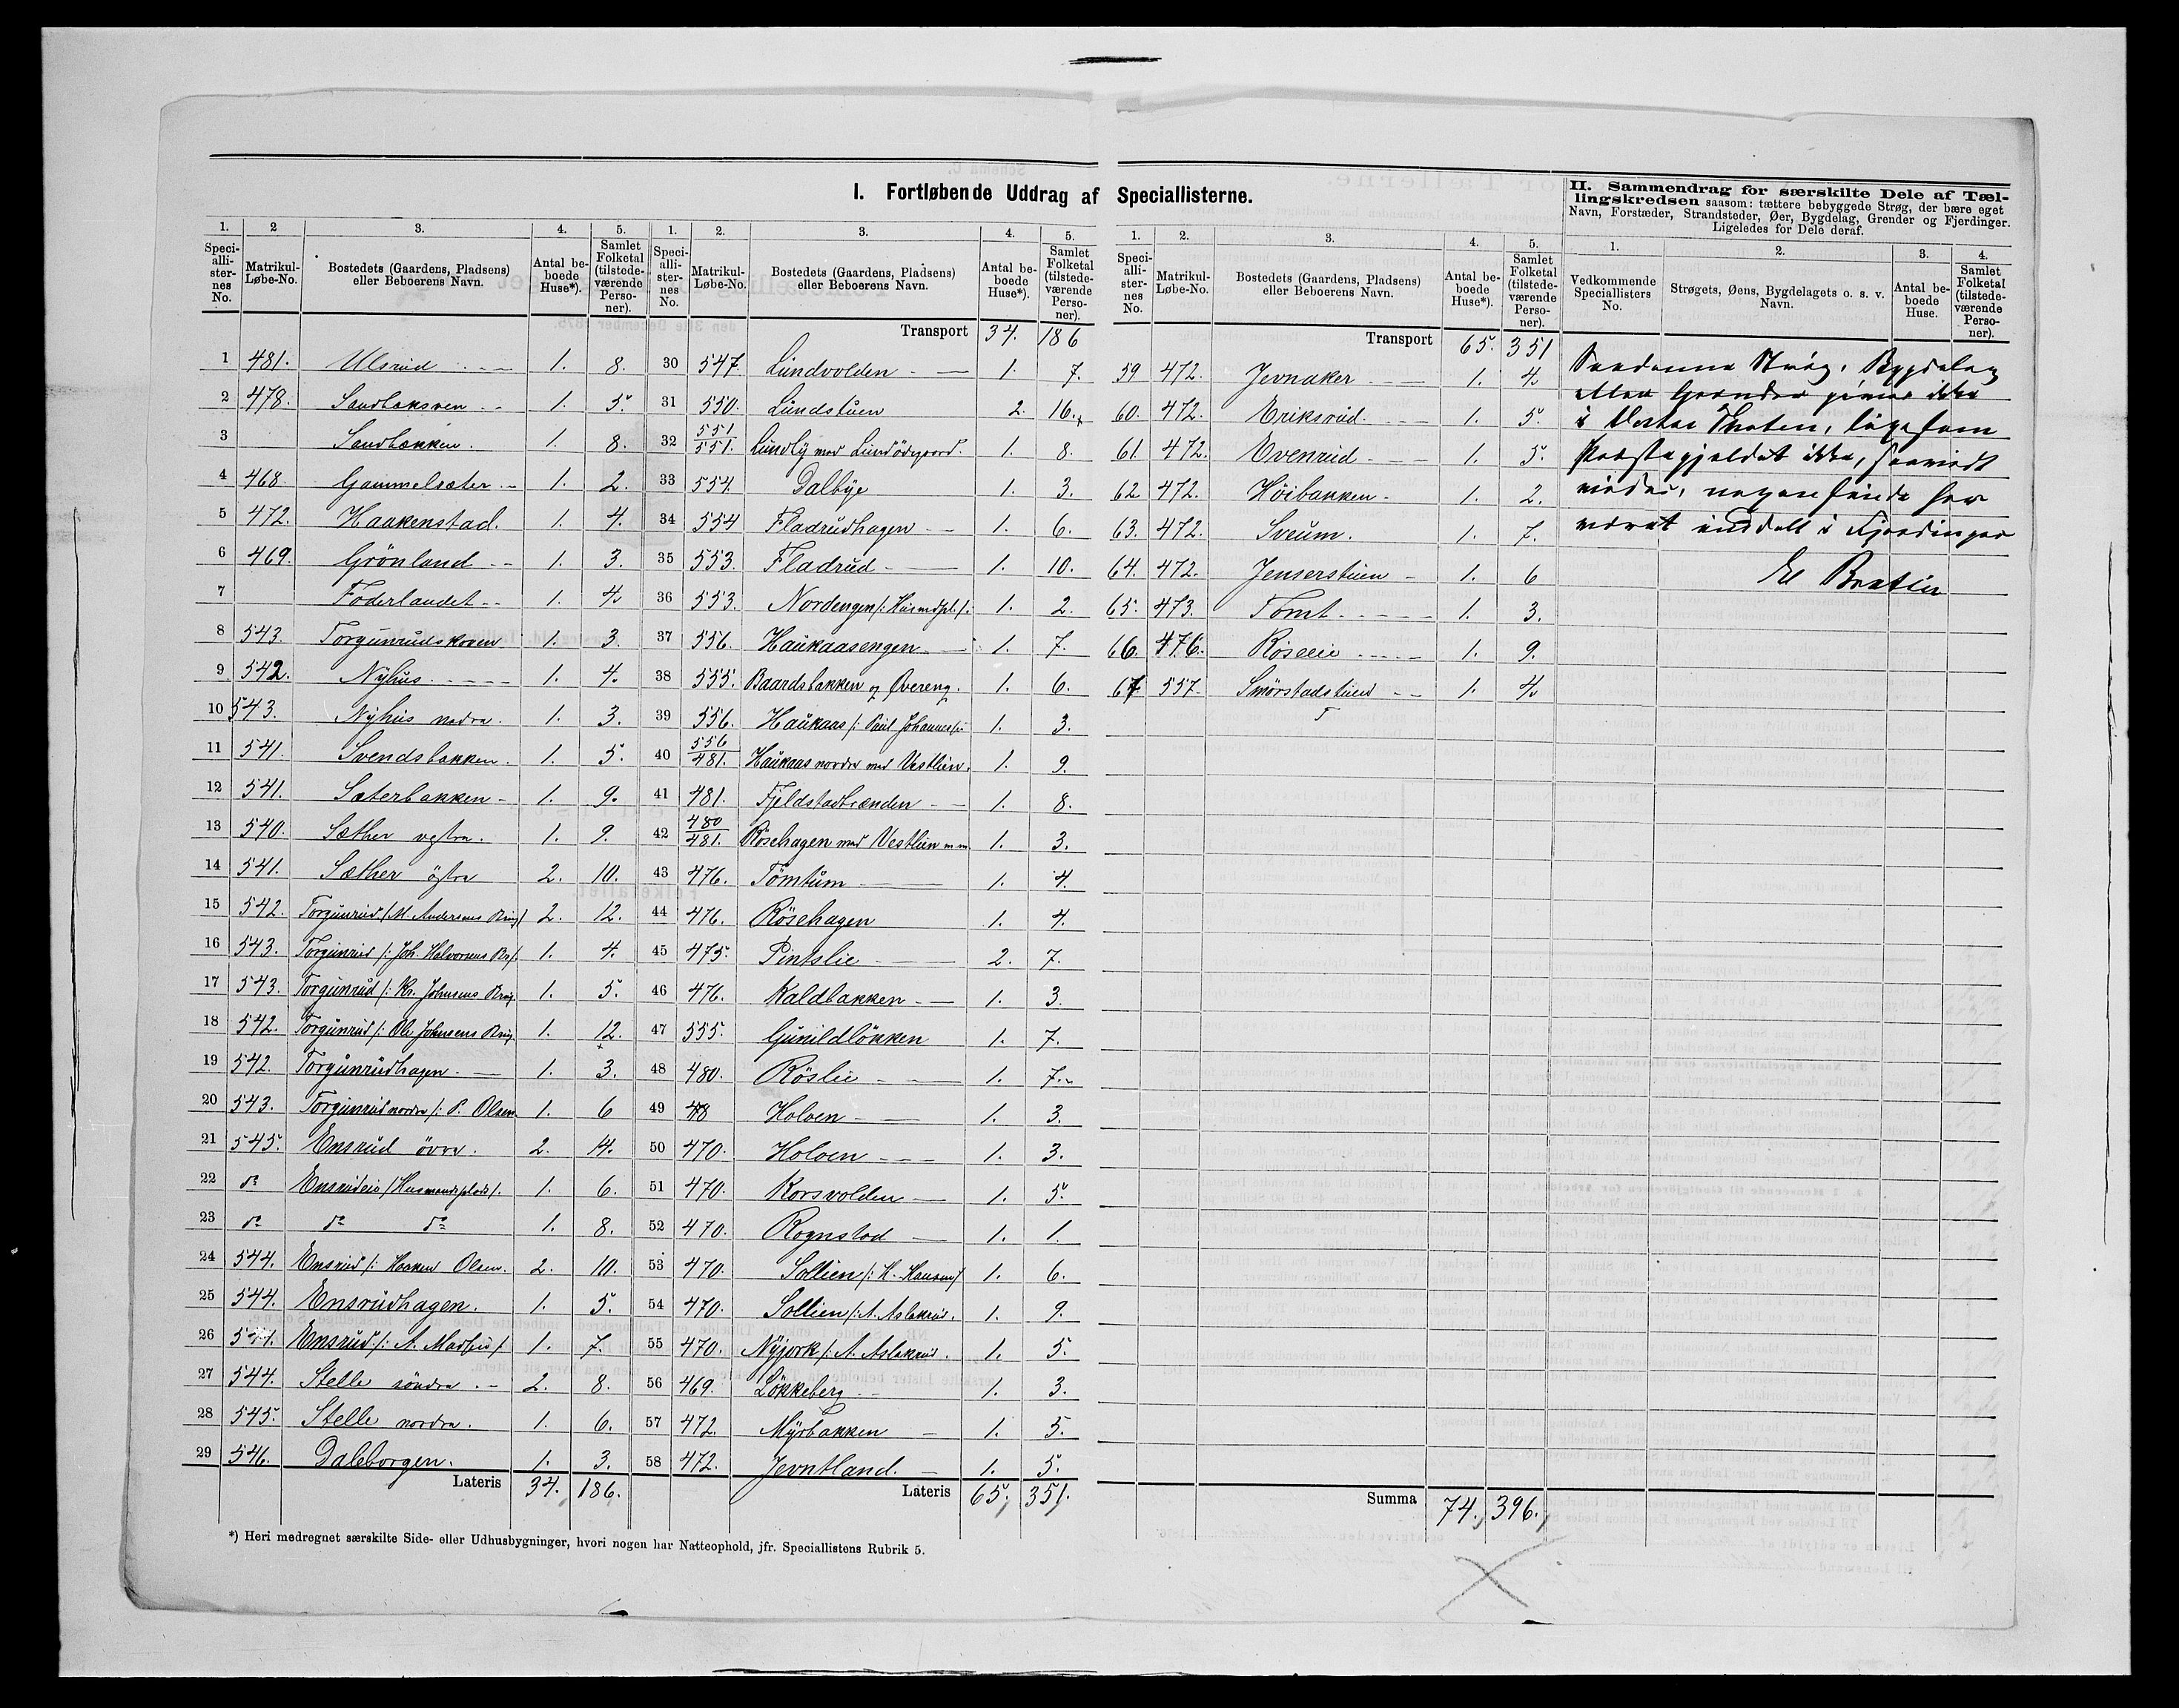 I. Fortløbende Uddrag af Speciallisterne.
II. Sammendrag for særskilte Dele af Tæl-
lingskredsen saasom: tættere bebyggede Strøg, der bære eget
Navn, Forstæder, Strandsteder, Øer, Bygdelag, Grender og Fjerdinger.
Ligeledes for Dele deraf.
1. 2 3. 4. 5.
Speci-alli-ster-nes No. Matrikul-Løbe-No. Bostedets (Gaardens, Pladsens) eller Beboerens Navn. Antal be-boede Huse*). Samlet Folketal (tilstede-værende Perso-ner).
1 481. Ulsrud 1. 8.
2 478. Sandbaksven 1. 5.
3 Sandbakken. 1. 8.
4 468. Gammelsæter 1. 2.
5 472. Haakenstad. 1. 4.
6 469. Grönland 1. 3.
7 Föderlandet 1. 4.
8 543. Torgunrudskoven 1. 3.
9 542. Nyhus 1. 4.
10 543. Nyhus nedre. 1. 3.
11 541. Svendsbakken. 1. 5.
12 541. Sæterbakken 1. 9.
13 540. Sæther vestre. 1. 9.
14 541. Sæther östre 2. 10.
15 542. Torgunrud /: M. Andersens Brug 2. 12.
16 543. Torgunrud /: Joh. Halvorsens Br/. 1. 4.
17 543. Torgunrud /: Kr. Johnsens Brug. 1. 5.
18 542. Torgunrud /: Ole Johnsens Brug. 1. 12.
19 542. Torgunrudhagen. 1. 3.
20 543. Torgunrud nordre /: P. Olsen. 1. 6
21 545. Ensrud övre. 2. 14.
22 do Ensrudeie /: Husmandsplads/. 1. 6.
23 do do do 1. 8.
24 544. Ensrud /: Haaken Olsen. 2. 10.
25 544. Ensrudhagen. 1. 5.
26 544. Ensrud /: A. Madsen / 1. 7.
27 544. Stelle söndre. 2. 8.
28 545. Stelle nordre. 1. 6.
29 546. Daleborgen. 1. 3.
Lateris 34. 186.
1. 2. 3. 4. 5.
Speci-alli-ster-nes No. Matrikul-Løbe-No. Bostedets (Gaardens, Pladsens) eller Beboerens Navn. Antal be-boede Huse*). Samlet Folketal (tilstede-værende Perso-ner).
Transport 34. 186
30 547. Lundvolden 1. 7.
31 550. Lundstuen 2. 16.
32 551/551. Lundly med Lundödegaard. 1. 8.
33 554. Dalbye 1. 3.
34 554 Fladrudhagen 1. 6.
35 553. Fladrud 1. 10.
36 553. Nordengen /: Husmdpl. /: 1. 2.
37 556. Haukaasengen 1. 7.
38 555. Baardsbakken og Övereng. 1. 6.
39 556. Haukaas /: Paul Johannes/: 1. 3.
40 556/481. Haukaas nordre med Vestlien. 1. 9.
41 481. Fjeldstadbrænden 1. 8.
42 480/481. Rösehagen med Vestlien m m 1. 3.
43 476. Tömtum 1. 4.
44 476. Rösehagen 1. 4.
45 475. Pintslie 2. 7.
46 476. Kaldbakken 1. 3.
47 555. Gunildlökken 1. 7.
48 480. Röslie 1. 7.
49 Holoen 1. 3.
50 470. Holoen 1. 3.
51 470. Korsvolden 1. 5.
52 470. Rognstad 1. 1.
53 470. Sollien /: H. Hansen/ 1. 6.
54 470. Sollien /: A. Aslakrud. 1. 9.
55 470. Nyjork /: A. Aslakrud. 1. 5.
56 469. Lökkeberg 1. 3.
57 472. Myrbakken 1. 5.
58 472. Jevntland. 1. 5.
Lateris 65. 351.
1. 2. 3. 4. 5.
Speci-alli-ster-nes No. Matrikul-Løbe-No. Bostedets (Gaardens, Pladsens) eller Beboerens Navn. Antal be-boede Huse*). Samlet Folketal (tilstede-værende Perso-ner).
Transport 65. 351
59 472. Jevnaker 1. 4.
60. 472. Eriksrud. 1. 5.
61. 472. Evenrud 1. 5.
62 472. Höibakken 1. 2.
63. 472. Sveum. 1. 7.
64. 472. Jenserstuen 1. 6
65. 473. Tomt 1. 3.
66. 476. Röseeie 1. 9.
67 557. Smörstadstuen 1. 4.
Summa 74. 396.
1. 2. 3. 4.
Vedkommende Speciallisters No. Strøgets, Øens, Bygdelagets o. s. v. Navn. Antal be-boede Huse. Samlet Folketal (tilstede-værende Perso-ner).
Saadanne Strög, Bygdelag
eller Grender gives ikke
i Vestre Thoten, ligesom
Præstegjeldet ikke, saavidt
vides, nogensinde har
været inddelt i Fjerdinger
*) Heri medregnet særskilte Side- eller Udhusbygninger, hvori nogen har Natteophold, jfr. Speciallistens Rubrik 5.